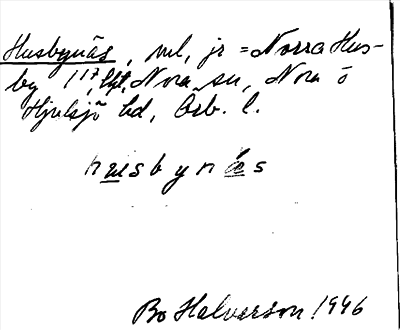 Husbynäs, ml, jr = Norra Hus-
by 1 17, Nora sn, Nora o
Hjulsjö bd, Örb. l.
husbynäs
Bo Halverson 1946